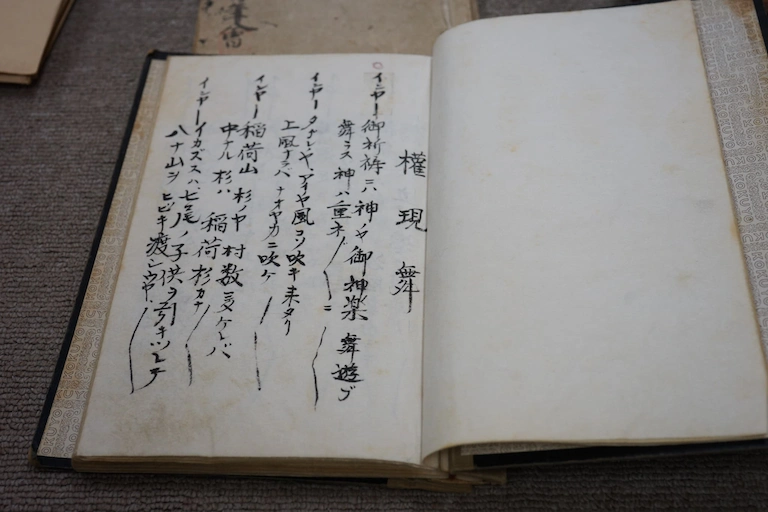 權現舞
イヤー御祈祷ニハ神々御神楽舞遊ブ
舞ラス神ハ重ネ〱ニ
イヤータナレヤアイヤ風コソ吹キ来タリ
上風ナラバナオヤカニ吹ケ
イヤー稲荷山杉ノヤ村数多ケレバ
中ナル杉ハ稲荷杉カナ
イヤーイカズスハ七尾ノ子供ヲ引キツレテ
八ナ山ヲヒビキ渡シウヤ